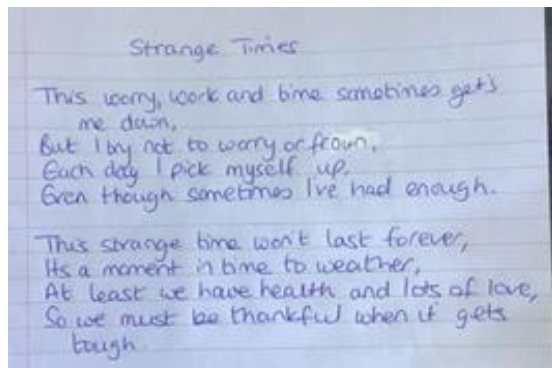 Strange Times
This worry, work and time sometimes gets
me down,
But I try not to worry or frown,
Each day I pick myself up,
Even though sometimes I've had enough.
This strange time won't last forever,
Its a moment in time to weather,
At least we have health and lots of love,
So we must be thankful when it gets
tough